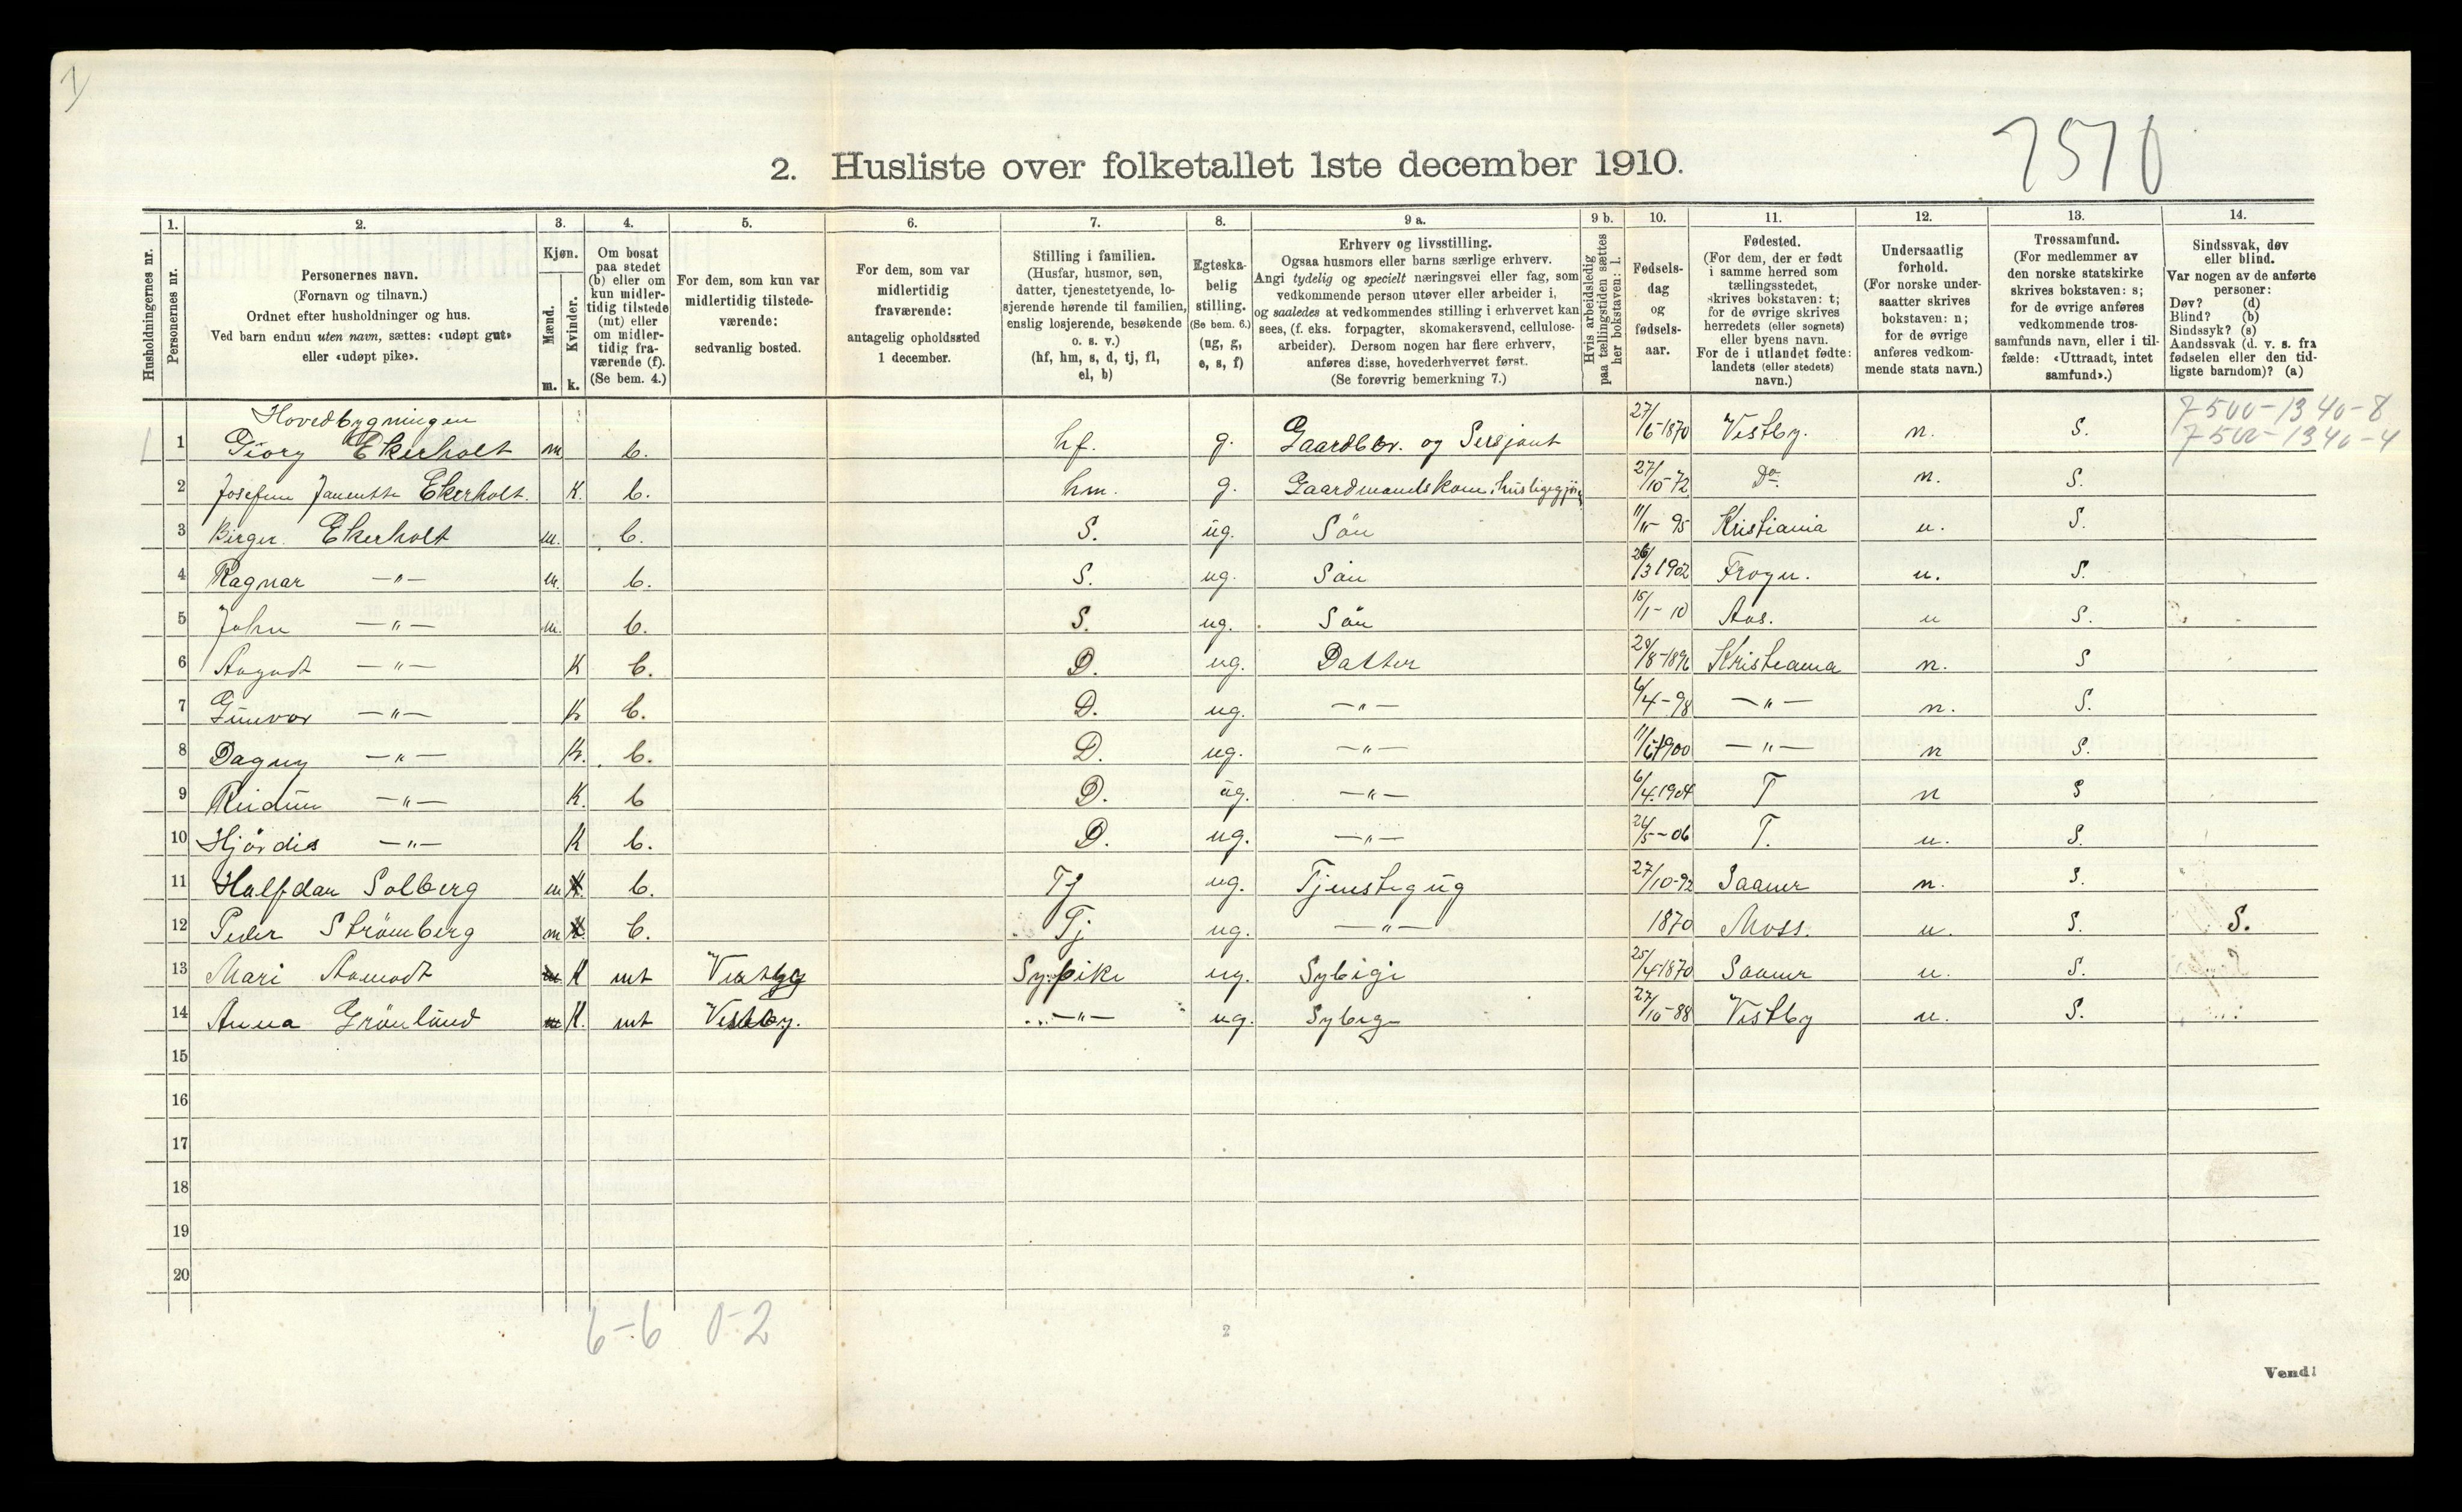 1)
7570
2. Husliste over folketallet 1ste december 1910.
Husholdningernes nr.
1. Personernes nr.
2. Personernes navn. (Fornavn og tilnavn.) Ordnet efter husholdninger og hus. Ved barn endnu uten navn, sættes: «udøpt gut» eller «udøpt pike».
3. Kjøn. Mænd. m. Kvinder. k.
4. Om bosat paa stedet (b) eller om kun midler-tidig tilstede (mt) eller om midler-tidig fra-værende (f). (Se bem. 4.)
5. For dem, som kun var midlertidig tilstede-værende: sedvanlig bosted.
6. For dem, som var midlertidig fraværende: antagelig opholdssted 1 december.
7. Stilling i familien. (Husfar, husmor, søn, datter, tjenestetyende, lo-sjerende hørende til familien, enslig losjerende, besøkende o. s. v.) (hf, hm, s, d, tj, fl, el, b)
8. Egteska-belig stilling. (Se bem. 6.) (ug, g, e, s, f)
9 a. Erhverv og livsstilling. Ogsaa husmors eller barns særlige erhverv. Angi tydelig og specielt næringsvei eller fag, som vedkommende person utøver eller arbeider i, og saaledes at vedkommendes stilling i erhvervet kan sees, (f. eks. forpagter, skomakersvend, cellulose-arbeider). Dersom nogen har flere erhverv, anføres disse, hovederhvervet først. (Se forøvrig bemerkning 7.)
9 b. Hvis arbeidsledig paa tællingstiden sættes her bokstaven: l.
10. Fødsels-dag og fødsels-aar.
11. Fødested. (For dem, der er født i samme herred som tællingsstedet, skrives bokstaven: t; for de øvrige skrives herredets (eller sognets) eller byens navn. For de i utlandet fødte: landets (eller stedets) navn.)
12. Undersaatlig forhold. (For norske under-saatter skrives bokstaven: n; for de øvrige anføres vedkom-mende stats navn.)
13. Trossamfund. (For medlemmer av den norske statskirke skrives bokstaven: s; for de øvrige anføres vedkommende tros-samfunds navn, eller i til-fælde: «Uttraadt, intet samfund».)
14. Sindssvak, døv eller blind. Var nogen av de anførte personer: Døv? (d) Blind? (b) Sindssyk? (s) Aandssvak (d. v. s. fra fødselen eller den tid-ligste barndom)? (a)
Hovedbygningen
7-500-1340-8
1 1 Georg Ekerholt m b. hf. g. Gaardbr. og Sersjant 27/6-1870 Vestby. n. S. 7-500-1340-4
2 Josefine Ekerholt. K. b. hm. g. Gaardmandskone, 27/10-72 Do n. S.
3 Birger Ekerholt m. b. S. ug. Sön 95 Kristiania n. S.
4 Ragnar —"— m. b. S. ug. Sön 26/3 1902 Frogn. n. S.
5 John —"— m. b. S. ug. Sön 15/1-10 Aas. n S.
6 —"— K b. D. ug. Datter Kristiania n. S
7 Gunvor —"— K b. D. ug. —"— 6/4-98 —"— n. S.
8 Dagny —"— K. b. D. ug. —"— 1900 —"— n S.
9 Reidun —"— K. b D. ug. —"— 6/4.1904 T n S
10 Hjördis —"— K b. D. ug. —"— 24/5-06 T. n. S.
11 Halfdan Solberg m b. Tj ug. 27/10-92 Saaner n. S.
12 Peder Strömberg m b. Tj ug. —"— 1870 Moss. n. S. S.
13 Mari Aamodt K mt Vestby Sypike ug. 25/4 1870 Saaner n. S.
14 Anna Grönlund K. mt Vestby. —"— ug. 27/10-88 Vestby n. S.
15
16
17
18
19
20
6-6 0-2
2
Vend!